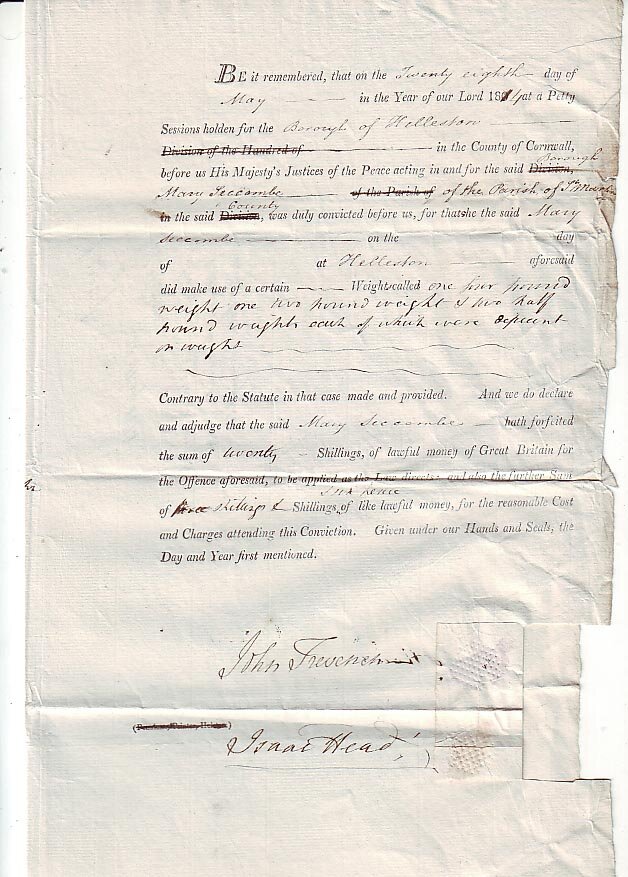 BE it remembered, that on the Twenty eighth day of
May in the Year of our Lord 1814 at a Petty
Sessions holden for the Borough of Helleston
Division of the Hundred of in the County of Cornwall,
before us His Majesty's Justices of the Peace acting in and for the said Division, Borough
Mary Seccombe of the Parish of of the Parish of
in the said Division, County was duly convicted before us, for that she the said Mary
Seccombe on the day
of at Helleston aforesaid
did make use of a certain Weights called one four pound
weight one two pound weight & two half
pound weights each of which were deficient
in weight
Contrary to the Statute in that case made and provided. And we do declare
and adjudge that the said Mary Seccombe hath forfeited
the sum of twenty Shillings, of lawful money of Great Britain for
the Offence aforesaid, to be applied as the Law directs and also the further Sum
of three Shillings & six pence Shillings, of like lawful money, for the reasonable Cost
and Charges attending this Conviction. Given under our Hands and Seals, the
Day and Year first mentioned.
John
Isaac Head